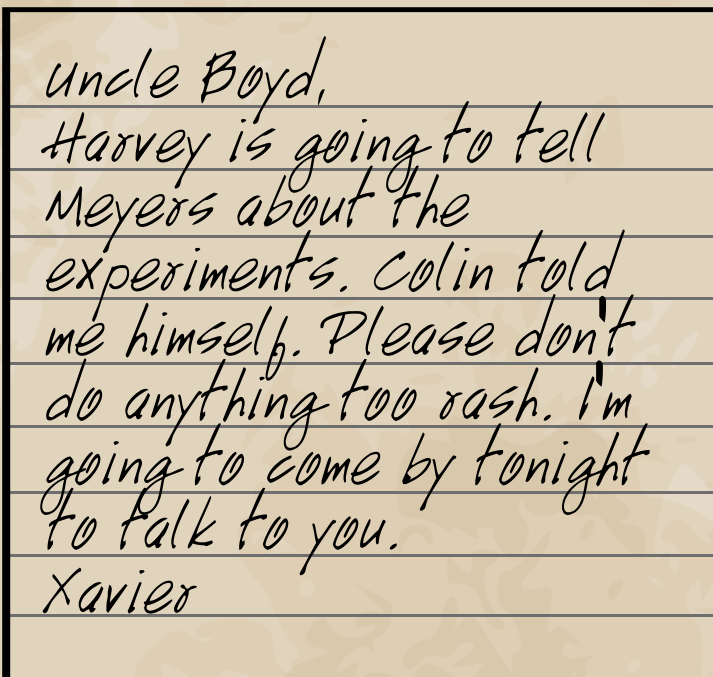 Uncle Boyd,
Harvey is going to tell
Meyers about the
experiments. Colin told
me himself. Please don't
do anything too rash. I'm
going to come by tonight
to talk to you.
Xavier